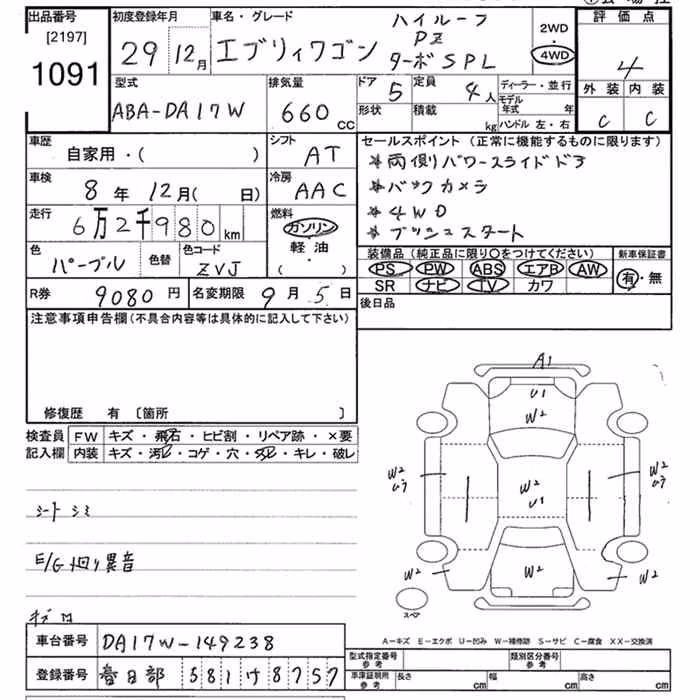 出品番号
[2197]
1091
初度登録年月
29 12月
車名・グレード
エブリィワゴン
ハイルーフ
PZ
ターボ SPL
2WD
4WD
評価点
4
外装 内装
C C
型式
ABA-DA17W
排気量
660 CC
ドア 5
定員 4人
形状
積載 kg
ディーラー・並行
モデル年式 年
ハンドル 左・右
車歴
自家用・( )
シフト
AT
車検
8年 12月( 日)
冷房
AAC
走行
6万2千980km
燃料
ガソリン
軽油
( ・ )
色
パープル
色替
色コード
ZVJ
R券 9080円
名変期限 9月5日
セールスポイント (正常に機能するものに限ります)
*両側パワースライドドア
*バックカメラ
*4WD
*プッシュスタート
装備品 (純正品に限り○をつけてください)
PS PW ABS エアB AW
SR ナビ TV カワ
新車保証書
有・無
後日品
注意事項申告欄(不具合内容等は具体的に記入して下さい)
修復歴 有 〔箇所 〕
検査員
記入欄
FW キズ・飛石・ヒビ割・リペア跡・×要
内装 キズ・汚レ・コゲ・穴・スレ・キレ・破レ
シート シミ
E/G 廻り異音
A1
U1
W2
W2
ムラ
W2
U1
W2
ムラ
W2
W2
W2
スペア
A-キズ E-エクボ U-凹み W-補修跡 S-サビ C-腐食 XX-交換済
車台番号 DA17W-149238
登録番号 春日部 581け8757
型式指定番号
参考
類別区分番号
参考
車庫証明用
参考
長さ cm 幅 cm 高さ cm